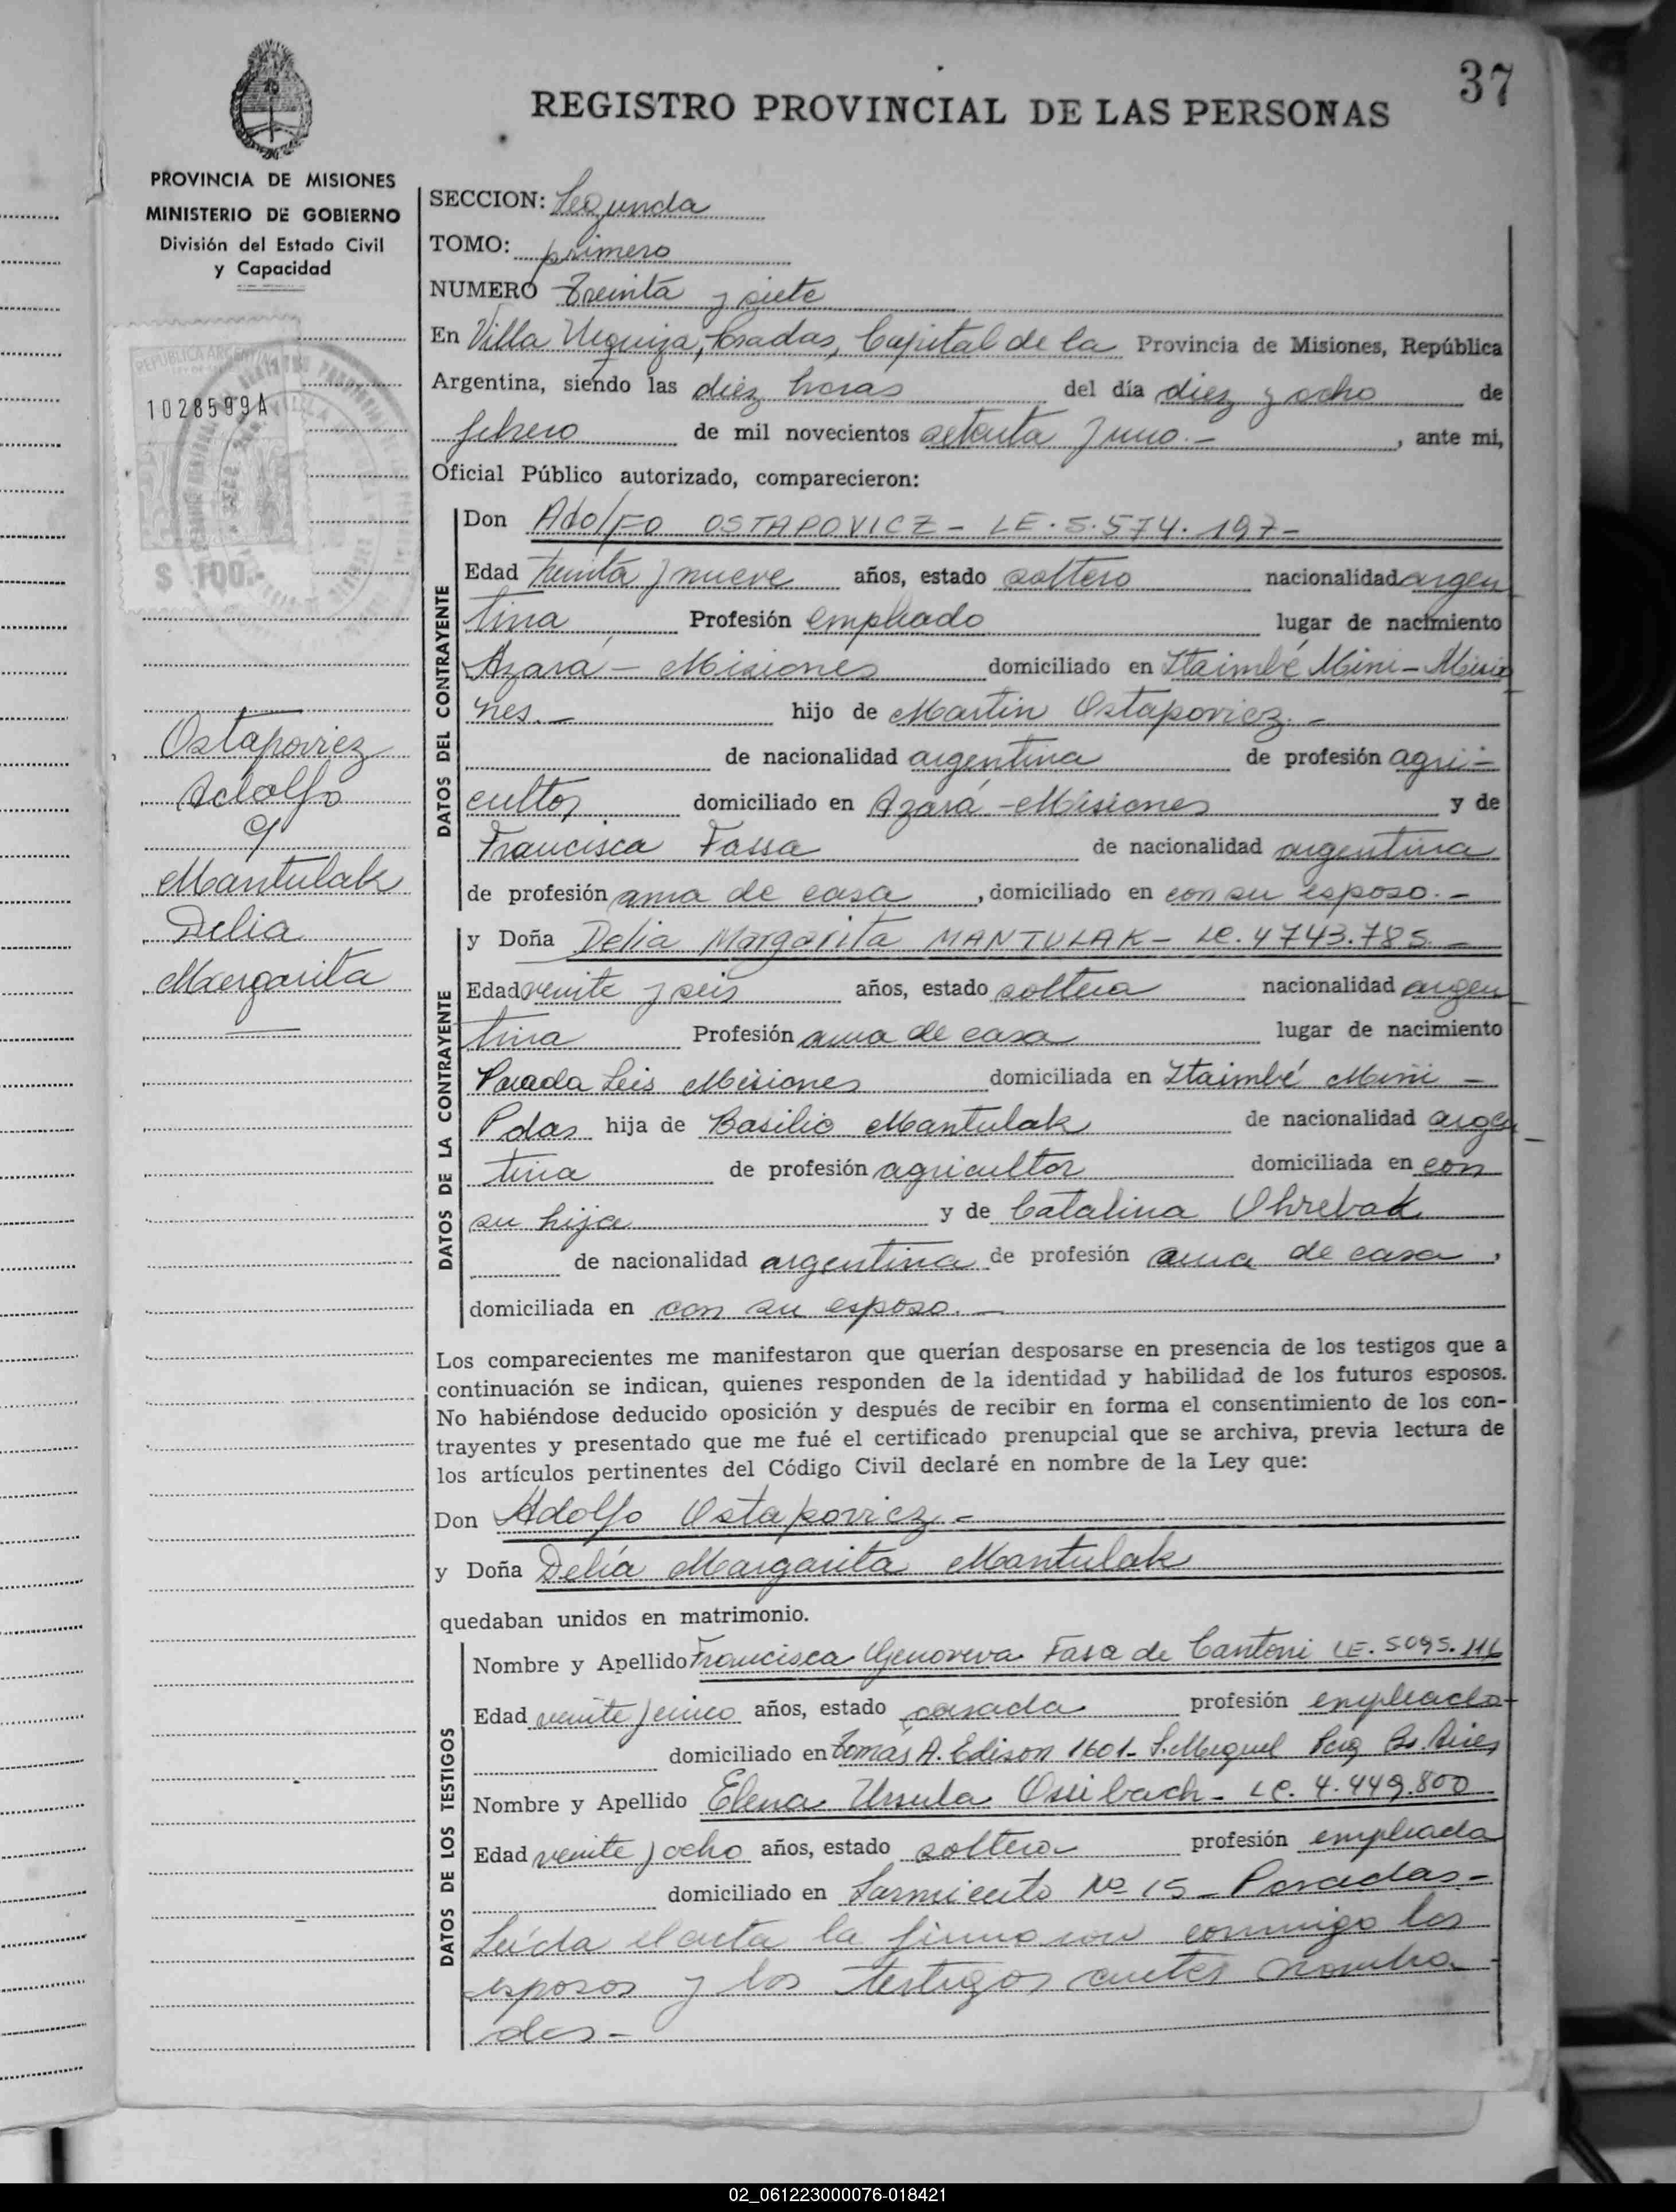 37
REGISTRO PROVINCIAL DE LAS PERSONAS
PROVINCIA DE MISIONES
MINISTERIO DE GOBIERNO
División del Estado Civil
y Capacidad
REPUBLICA ARGENTINA
1028599A
$ 100.-
Ostapovicz
Adolfo
y
Mantulak
Delia
Margarita
SECCION: Segunda
TOMO: primero
NUMERO Treinta y siete
En Villa Urquiza, Posadas, Capital de la Provincia de Misiones, República
Argentina, siendo las diez horas del día diez y ocho de
febrero de mil novecientos setenta y uno.- , ante mi,
Oficial Público autorizado, comparecieron:
DATOS DEL CONTRAYENTE
Don Adolfo OSTAPOVICZ - LE. 5.574.197-
Edad treinta y nueve años, estado soltero nacionalidad argen
tina Profesión empleado lugar de nacimiento
Azará - Misiones domiciliado en Itaimbé Mini - Misio
nes.- hijo de Martin Ostapovicz.-
de nacionalidad argentina de profesión agri-
cultor domiciliado en Azará - Misiones y de
Francisca Fassa de nacionalidad argentina
de profesión ama de casa , domiciliado en con su esposo.-
DATOS DE LA CONTRAYENTE
y Doña Delia Margarita MANTULAK - LC. 4743.785.-
Edad veinte y seis años, estado soltera nacionalidad argen
tina Profesión ama de casa lugar de nacimiento
Parada Leis Misiones domiciliada en Itaimbé Mini -
Pdas hija de Basilio Mantulak de nacionalidad argen
tina de profesión agricultor domiciliada en con
su hija y de Catalina Ohrebak
de nacionalidad argentina de profesión ama de casa ,
domiciliada en con su esposo.-
Los comparecientes me manifestaron que querían desposarse en presencia de los testigos que a
continuación se indican, quienes responden de la identidad y habilidad de los futuros esposos.
No habiéndose deducido oposición y después de recibir en forma el consentimiento de los con-
trayentes y presentado que me fué el certificado prenupcial que se archiva, previa lectura de
los artículos pertinentes del Código Civil declaré en nombre de la Ley que:
Don Adolfo Ostapovicz -
y Doña Delia Margarita Mantulak
quedaban unidos en matrimonio.
DATOS DE LOS TESTIGOS
Nombre y Apellido Francisca Genoveva Fasa de Cantoni LE. 5095.116
Edad veinte y cinco años, estado casada profesión empleada
domiciliado en Tomás A. Edison 1601- S. Miguel Bs. Aires
Nombre y Apellido Elena Ursula - LC. 4.449.800
Edad veinte y ocho años, estado soltera profesión empleada
domiciliado en Sarmiento Nº 15 - Posadas -
Leída el acta la firmaron conmigo los
esposos y los testigos antes nombra
dos -
02_061223000076-018421